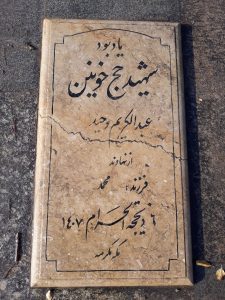 یادبود
شهید حج خونین
عبدالکریم وحید
از نهاوند
فرزند: محمد
۶ ذیحجة الحرام ۱۴۰۷
مکه مکرمه